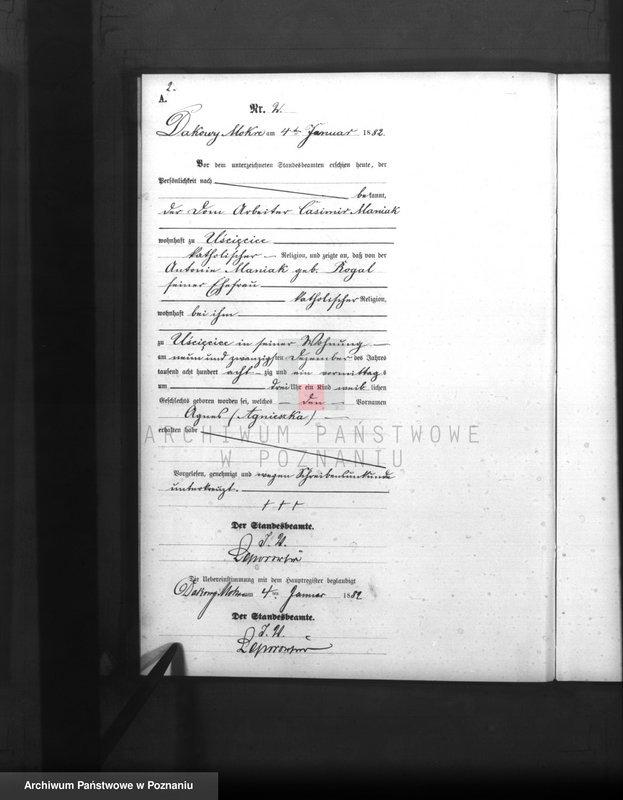 2.
A.
Nr. 2.
Dakowy Mokre am 4ten Januar 1882
Vor dem unterzeichneten Standesbeamten erschien heute, der
Persönlichkeit nach
bekannt,
der Dom Arbeiter Casimir Maniak
wohnhaft zu Uścięcice
katholischer Religion, und zeigte an, daß von der
Antonie Maniak geb. Rogal
seiner Ehefrau
katholischer Religion,
wohnhaft bei ihm
zu Uścięcice in seiner Wohnung
am neun und zwanzigsten Dezember des Jahres
tausend acht hundert acht zig und ein vormittags
um drei Uhr ein Kind weiblichen
Geschlechts geboren worden sei, welches den Vornamen
Agnes (Agnieszka)
erhalten habe
ARCHIWUM PAŃSTWOWE
W POZNANIU
Vorgelesen, genehmigt und wegen Schreibensunkunde
unterkreuzt.
+ + +
Der Standesbeamte.
J. V.
Die Uebereinstimmung mit dem Hauptregister beglaubigt
Dakowy Mokre am 4ten Januar 1882
Der Standesbeamte.
J. V.
Archiwum Państwowe w Poznaniu